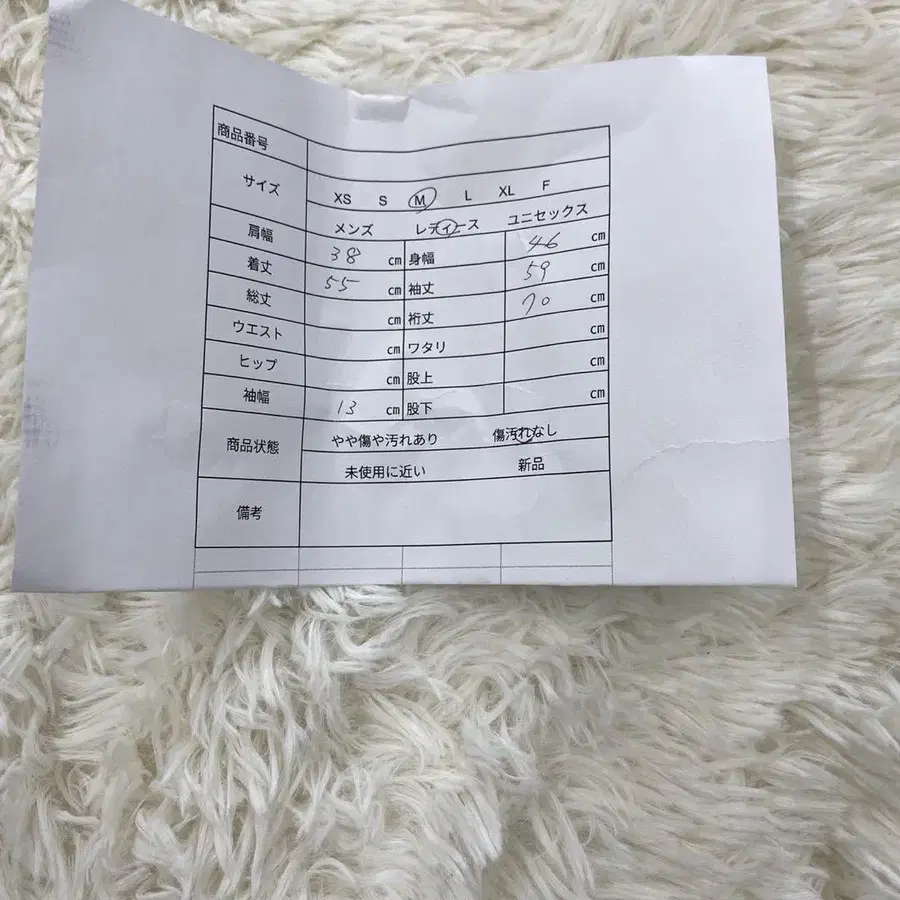 商品番号
サイズ XS S M L XL F
メンズ レディース ユニセックス
肩幅 38 cm 身幅 46 cm
着丈 55 cm 袖丈 59 cm
総丈 cm 裄丈 70 cm
ウエスト cm ワタリ cm
ヒップ cm 股上 cm
袖幅 13 cm 股下 cm
商品状態 やや傷や汚れあり 傷汚れなし
未使用に近い 新品
備考